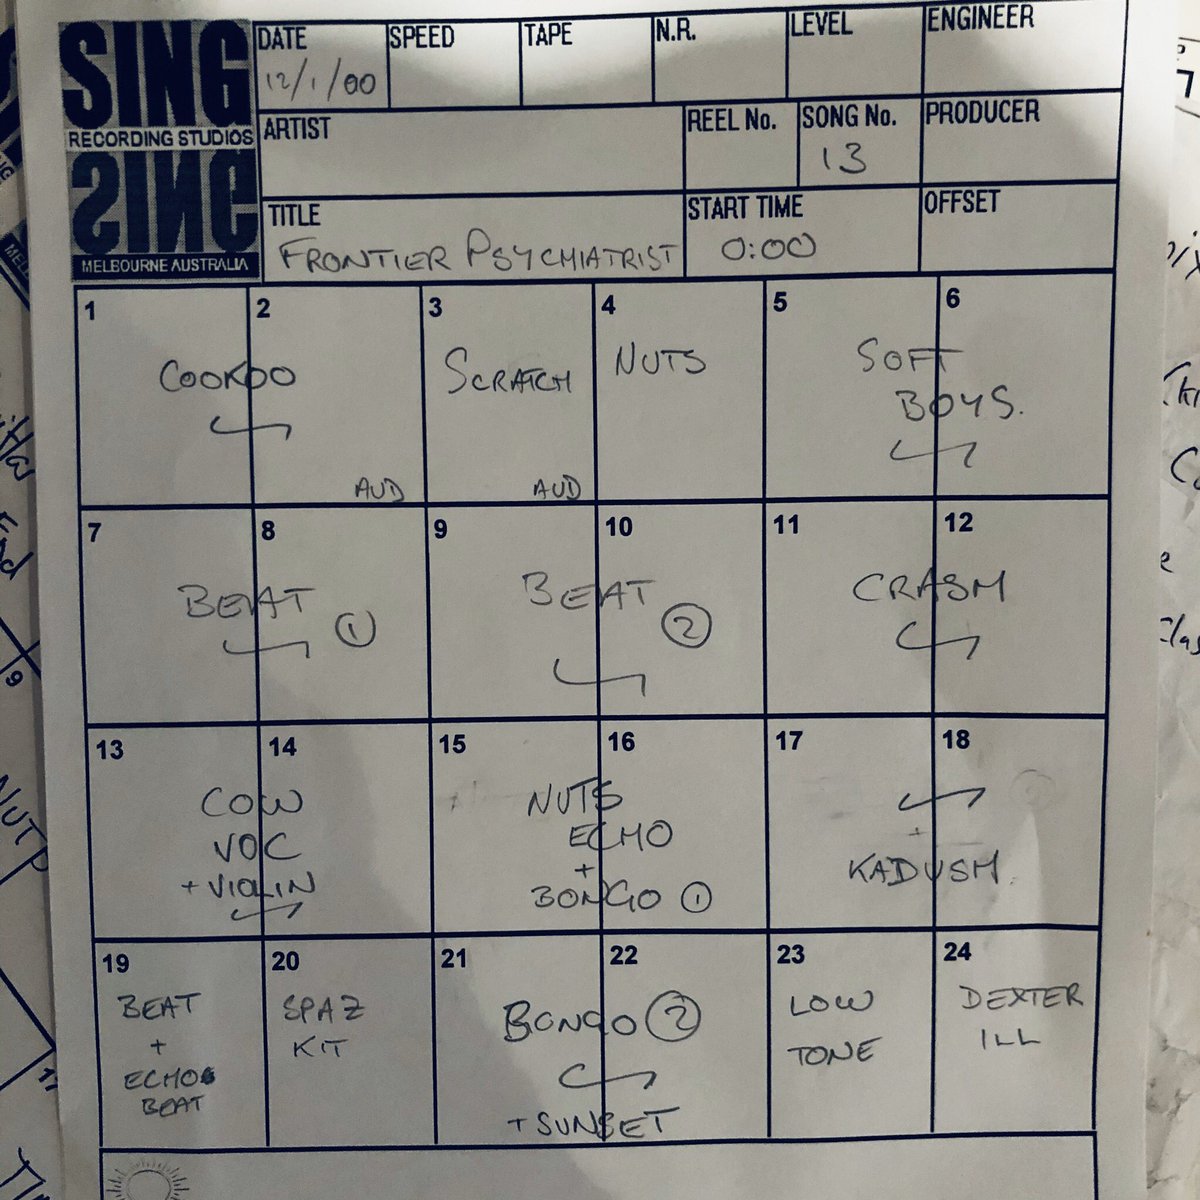 SING
RECORDING STUDIOS
SING
MELBOURNE AUSTRALIA
DATE
12/1/00
SPEED
TAPE
N.R.
LEVEL
ENGINEER
ARTIST
REEL No.
SONG No.
13
PRODUCER
TITLE
FRONTIER PSYCHIATRIST
START TIME
0:00
OFFSET
1 2
COOKOO
AUD
3
SCRATCH
AUD
4
NUTS
5 6
SOFT
BOYS.
7 8
BEAT 1
9 10
BEAT 2
11 12
CRASH
13 14
COW
VOC
+ VIOLIN
15 16
NUTS
ECHO
+
BONGO 1
17 18
+
KADUSH
19
BEAT
+
ECHO
BEAT
20
SPAZ
KIT
21 22
BONGO 2
+ SUNSET
23
LOW
TONE
24
DEXTER
ILL